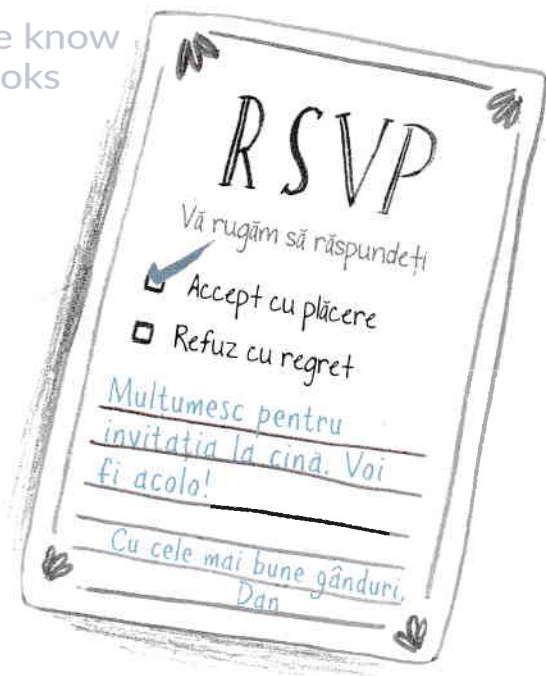 e know
oks
RSVP
Vă rugăm să răspundeți
Accept cu plăcere
Refuz cu regret
Mulțumesc pentru
invitația la cină. Voi
fi acolo!
Cu cele mai bune gânduri,
Dan